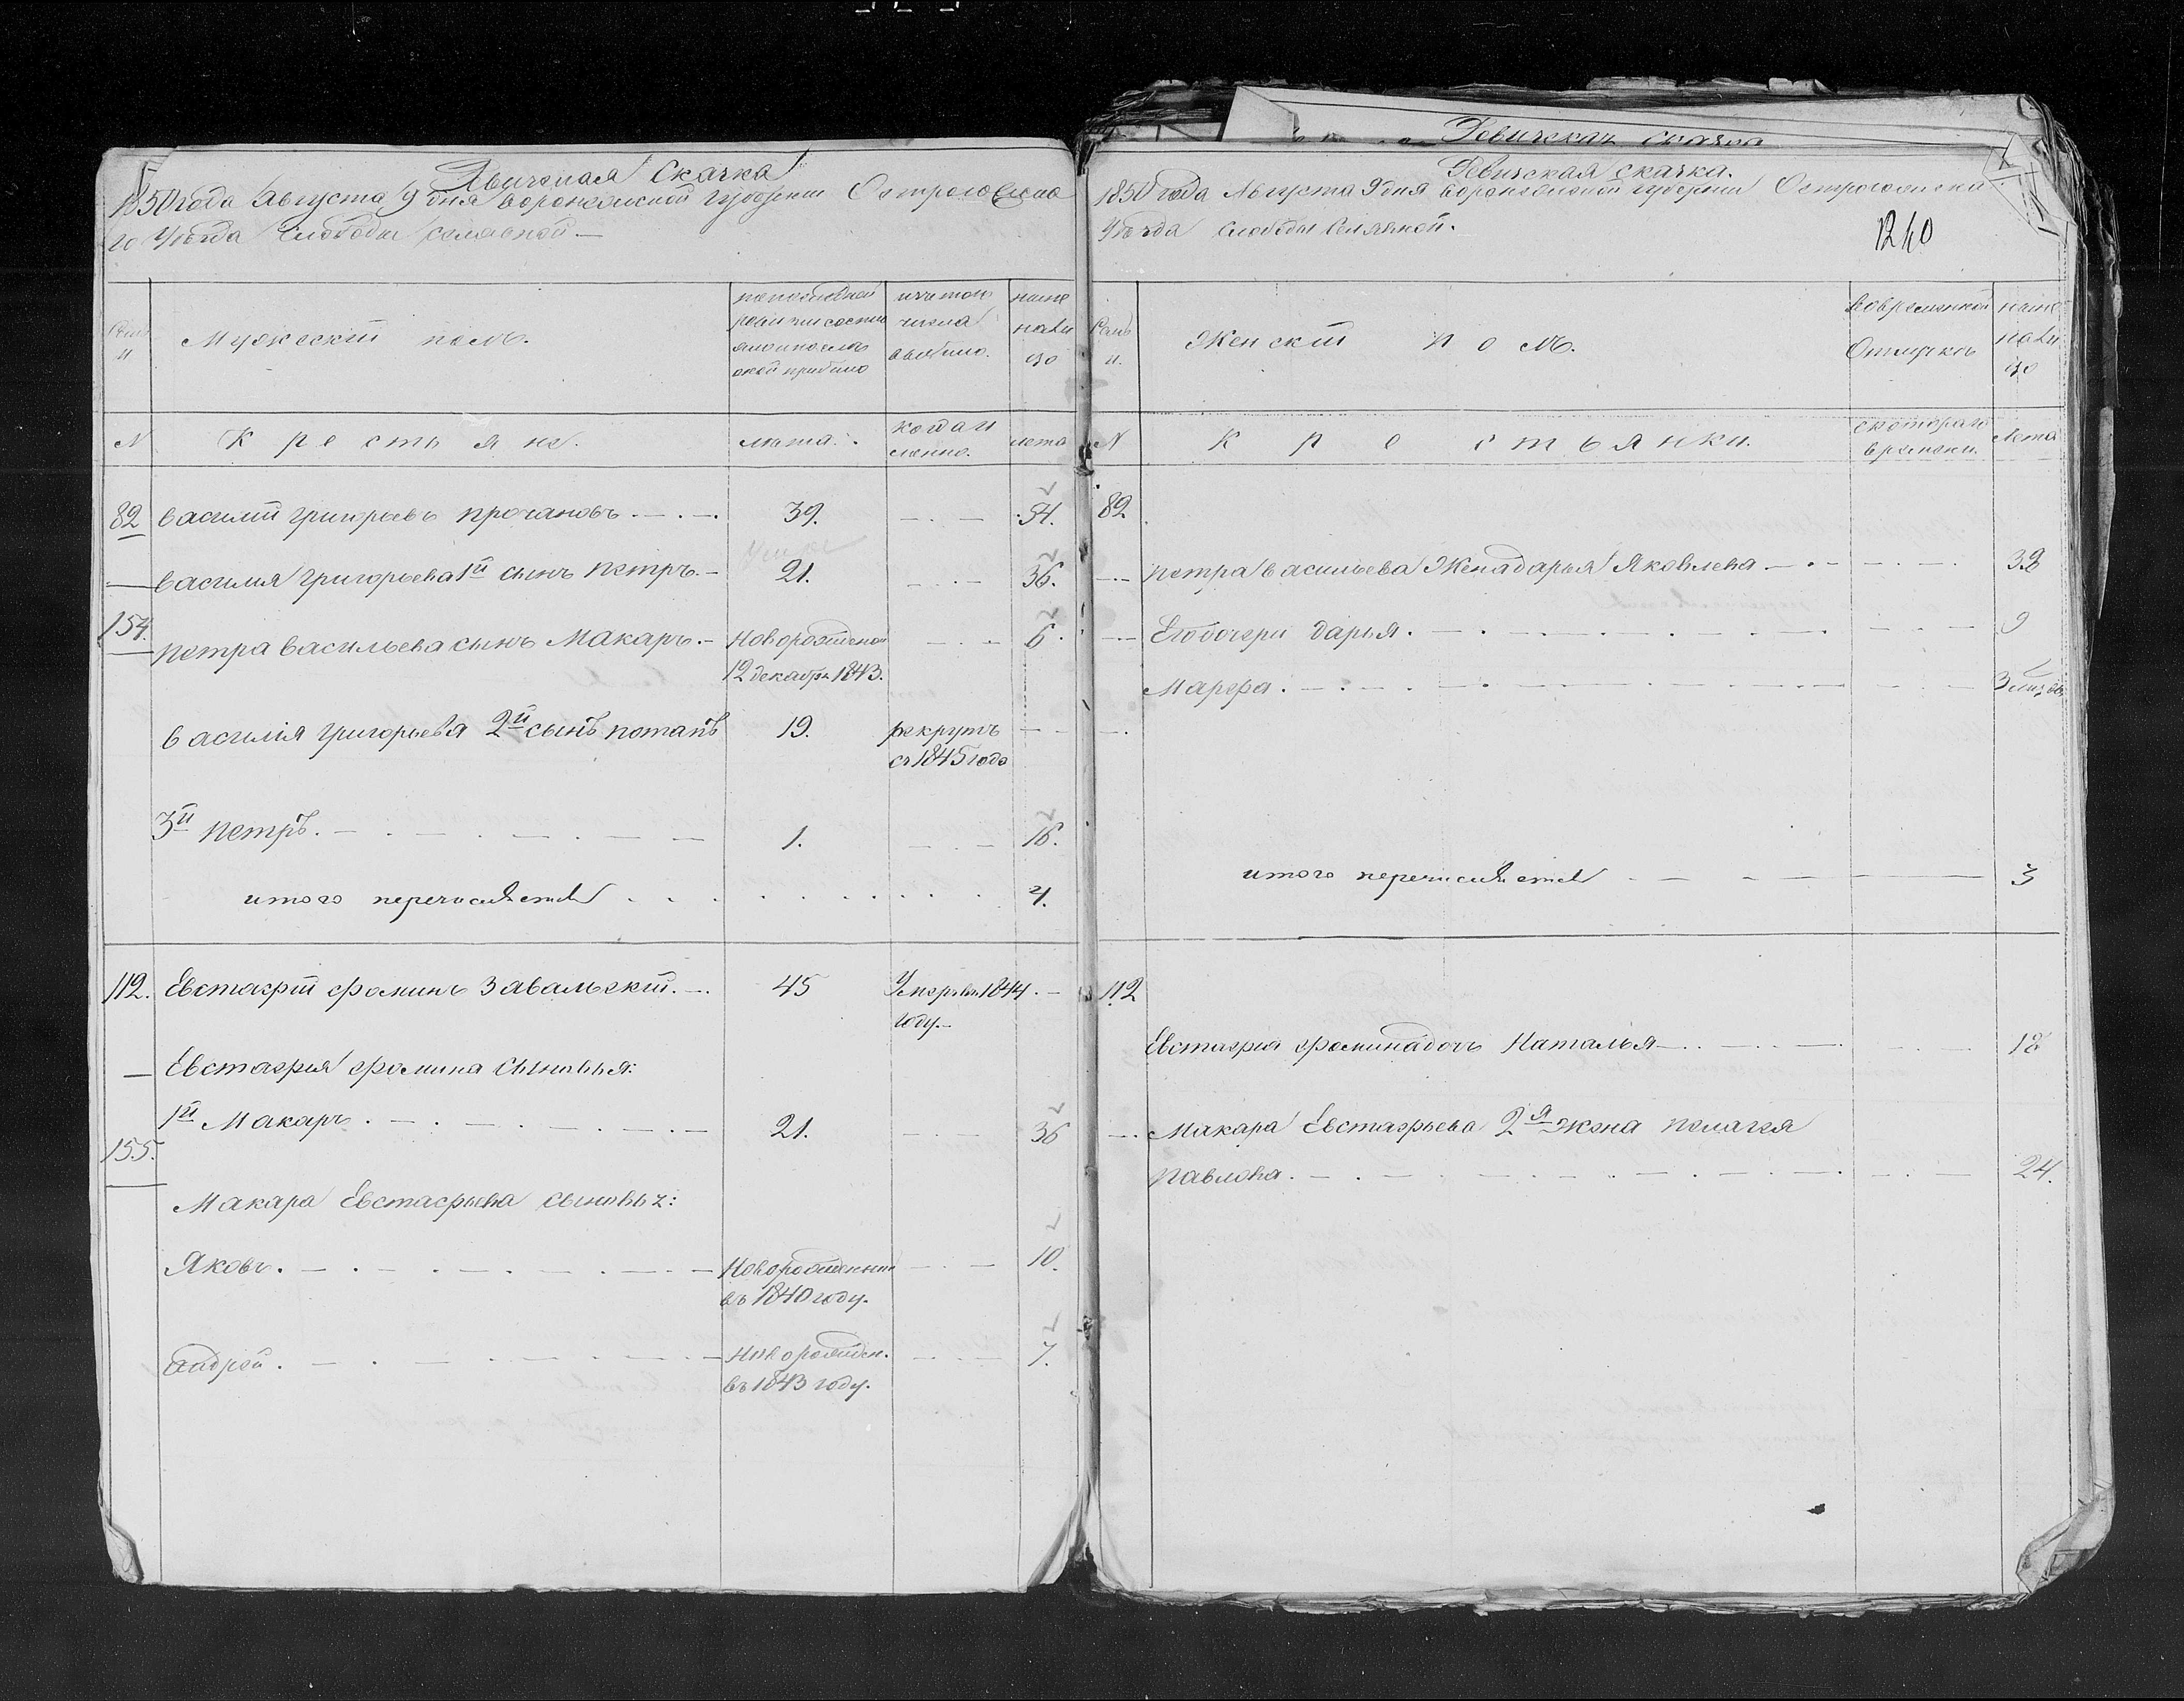 Ревизская Сказка
1850 года Августа 9 дня Воронежской губернии Острогожска
го Уезда Слободы Селявной —
Семьи
Мужеский полъ.
по последней ревизии состояло и после оной прибыло
изъ того числа выбыло.
ныне налицо
N
Крестьяне.
лета.
когда именно.
лета
82 Василий григорьевъ прочановъ 39. 54.
Василия григорьева 1й сынъ петръ. 21. 36.
154.
петра васильева сынъ Макаръ. Новорожденой 6.
12 декабря 1843.
василия григорьева 2й сынъ потапъ 19. рекрутъ
съ 1845 года
3й петръ. 1. 16.
итого перечисляется 4.
112. Евстафий фоминъ Завальский. 45 Умеръ въ 1844
году.
Евстафия фомина сыновья:
1й Макаръ. 21. 36
155.
Макара Евстафьева сыновья:
Яковъ. Новорожденный 10.
въ 1840 году.
андрей. Новорожден. 7.
въ 1843 году.
Ревизская сказка
Ревизская сказка.
1850 года Августа 9 дня Воронежской губернии Острогожска
Уезда слободы Селявной.
1240
Семьи.
Женский полъ.
Во временной Отлучке
ныне налицо
N
Крестьянки.
с котораго времени
лета
82
петра васильева Жена дарья Яковлева 32
Его дочери дарья. 9
Марфа.
итого перечисляется 3
112
Евстафия фомина дочь Наталья 12
Макара Евстафьева 2я жена пелагея
павлова. 24.